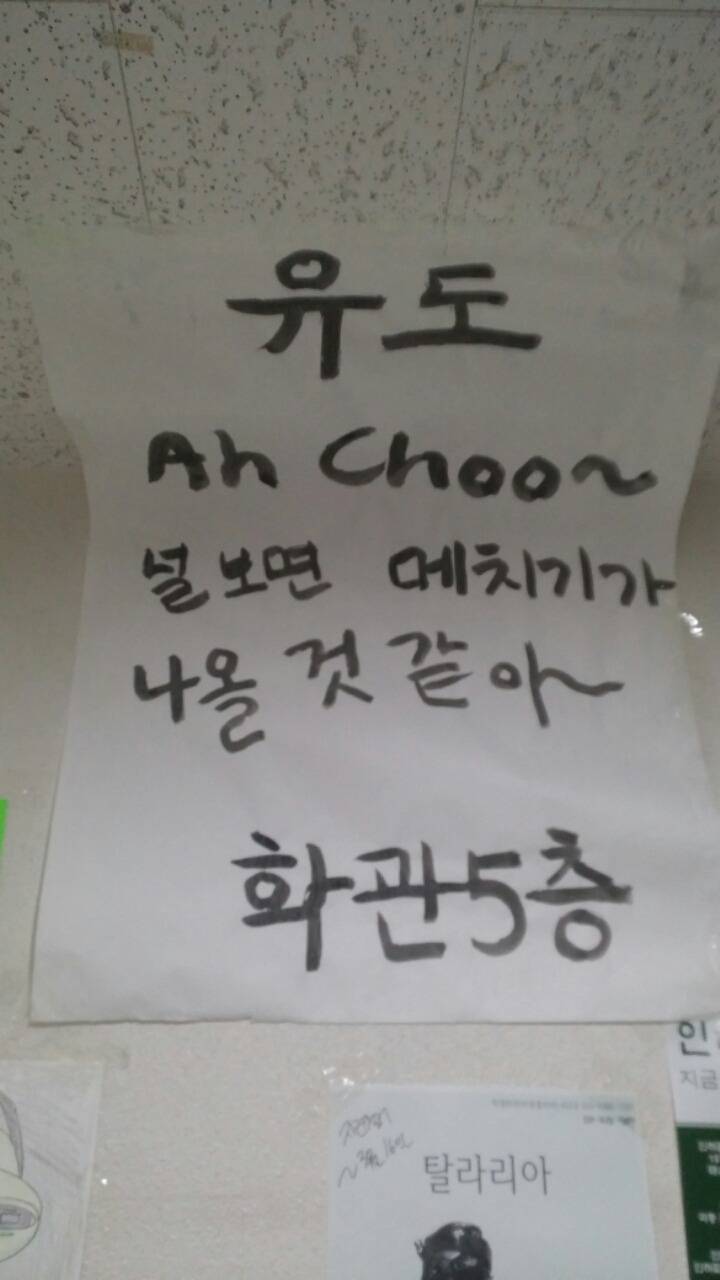 유도
Ah Choo~
널 보면 메치기가
나올 것 같아~
화관5층
탈라리아
인
지금